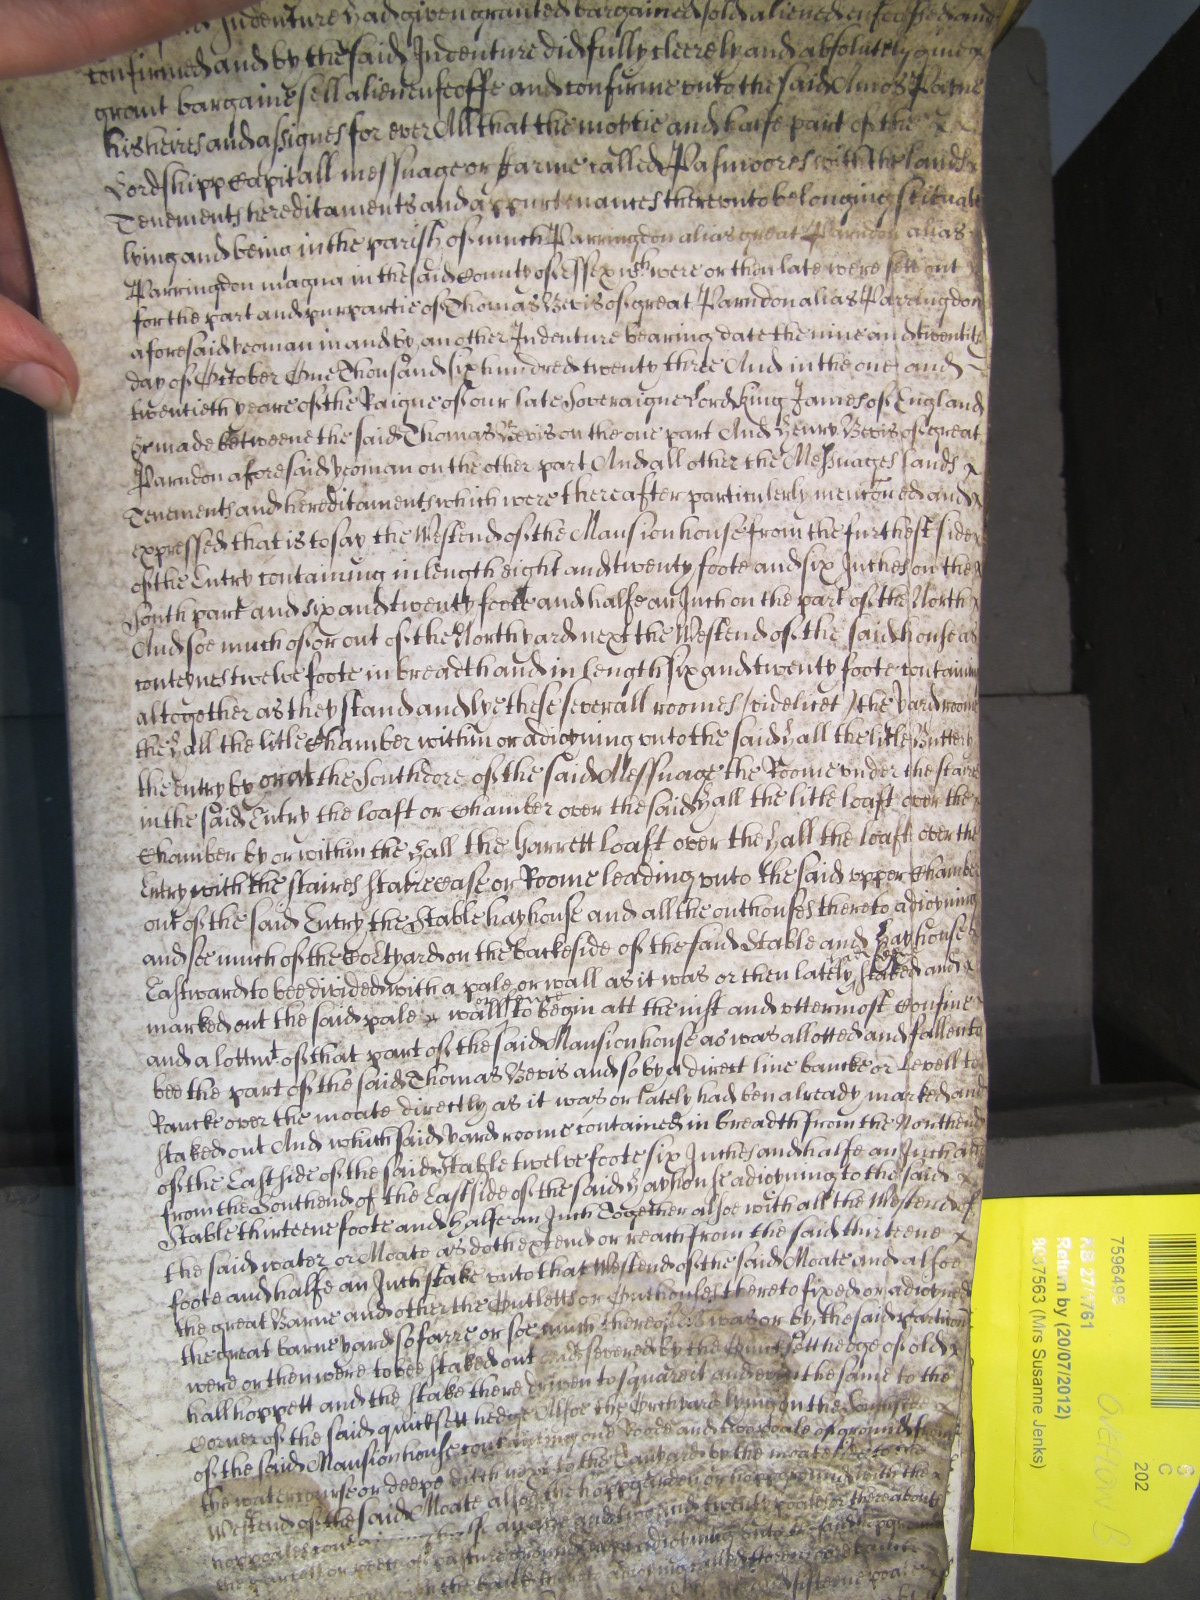 Indenture had given granted bargained sold aliened enfeoffed and
confirmed and by the said Indenture did fully cleerely and absolutely give
grant bargaine sell aliene enfeoffe and confirme unto the said Amos Payne
his heires and assignes for ever All that the moytie and halfe part of the
Lordshipp Capitall messuage or Farme called Pasmoores with the Lands
Tenements hereditaments and appurtenances thereonto belonging scituate
lying and being in the parish of much Parringdon alias great Parndon alias
Parringdon magna in the said County of Essex wch were or then late were sett out
for the part and purpartie of Thomas Bevis of great Parndon alias Parringdon
aforesaid yeoman in and by another Indenture bearing date the nine and twentith
day of October One Thousand six hundred twenty three And in the one and
twentieth yeare of the Raigne of our late Soveraigne Lord King James of England
&c made betweene the said Thomas Bevis on the one part And Henry Bevis of great
Parndon aforesaid yeoman on the other part And all other the Messuages lands
Tenements and hereditaments which were thereafter particulerly menconed and
expressed that is to say the Westend of the Mansion house from the furthest side
of the Entry containing in length eight and twenty foote and six Inches on the
South part and six and twenty foote and halfe an Inch on the part of the North
And soe much of or out of the North yard next the Westend of the said house as
conteynes twelve foote in breadth and in length six and twenty foote containing
altogether as they stand and lye these severall roomes / videlicet / the yard roome
the Hall the little Chamber within or adioyning unto the said Hall the little Buttery
the entry by or att the South dore of the said Messuage the Roome under the staires
in the said Entry the loaft or Chamber over the said Hall the litle loaft over the
Chamber by or within the Hall the Garrett loaft over the Hall the loaft over the
Entry with the staires staire case or Roome leading unto the said upper Chamber
out of the said Entry the Stable hayhouse and all the outhouses thereto adioyning
and soe much of the yard on the backeside of the said Stable and Hayhouse
Eastward to bee divided with a pale or wall as it was or then lately staked and
marked out the said pale or wall to begin att the just and uttermost Confine
and alottmt of that part of the said Mansion house as was allotted and fallen to
bee the part of the said Thomas Bevis and so by a direct line bancke or Levell to
Rancke over the moate directly as it was or lately had ben already marked and
staked out And which said yard roome contained in breadth from the Northend
of the Eastside of the said Stable twelve foote six Inches and halfe an Inch and
from the Southend of the Eastside of the said Hayhouse adioyning to the said
Stable thirteene foote and halfe an Inch Together alsoe with all the Westend of
the said water or Moate as doth extend or reach from the said thirteene
foote and halfe an Inch stake unto that Westend of the said Moate and alsoe
the great Barne and other the Outletts or Outhouses thereto fixed or adioyned
the great barne yard so farre or soe much thereof as was or by the said particon
were or then were to bee staked out and severed by the Quicksett hedge of old
hall hoppett and the stake there driven to square it and even the same to the
Corner of the said quicksett hedge Alsoe the Orchard lying on the Southside
of the said Mansion house containing one Roode and two poale of ground from
the water course or deepe ditch next to the by the moate side to the
Westend of the said Moate alsoe the hoppgarden or hoppground with the
hoppoales an acre and two and twenty poale or thereabouts
the parcell or peece of pasture ground adioyning unto the said hopground
7596495
KB 27/1761
Return by (20/07/2012)
8037563 (Mrs Susanne Jenks)
202